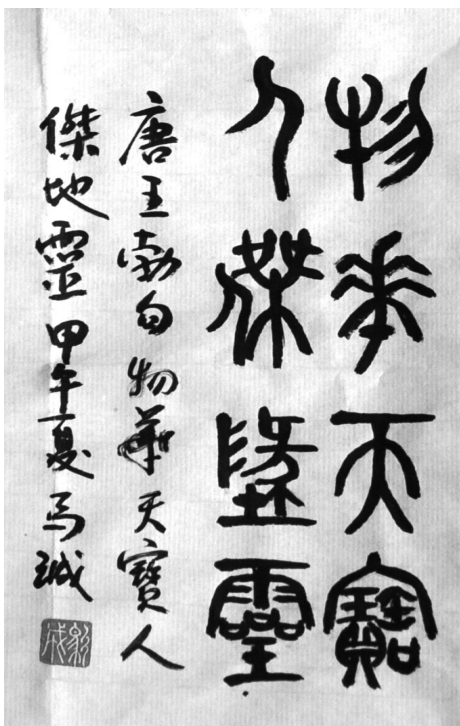 物華天寶
人傑地靈
唐王勃句物華天寶人
傑地靈甲午夏馬誠